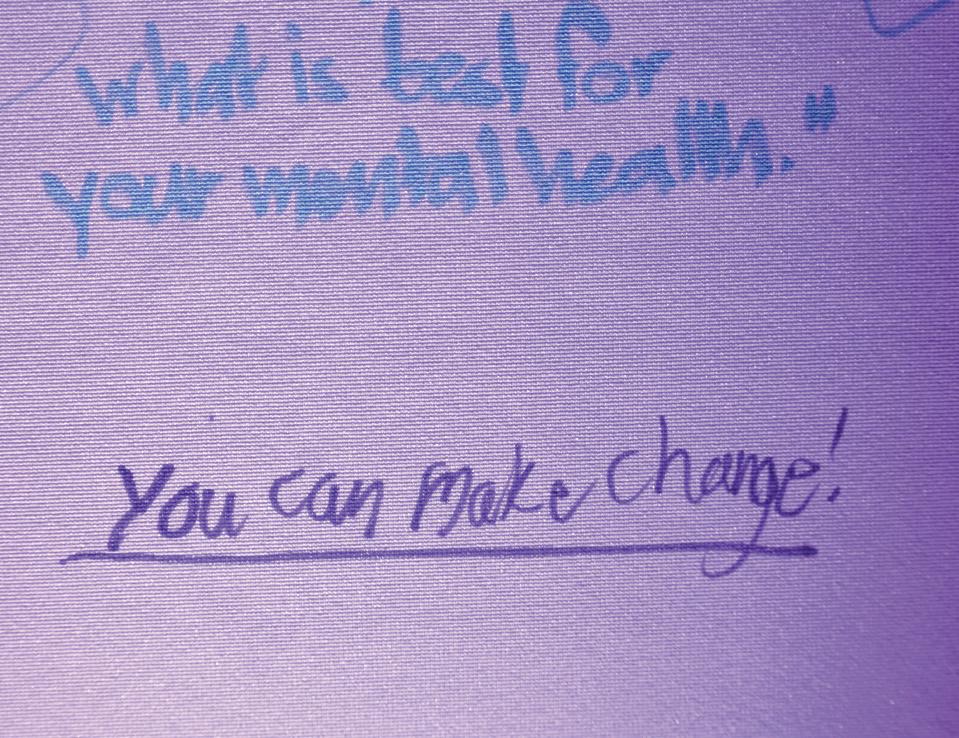 what is best for
your mental health."
You can make change!